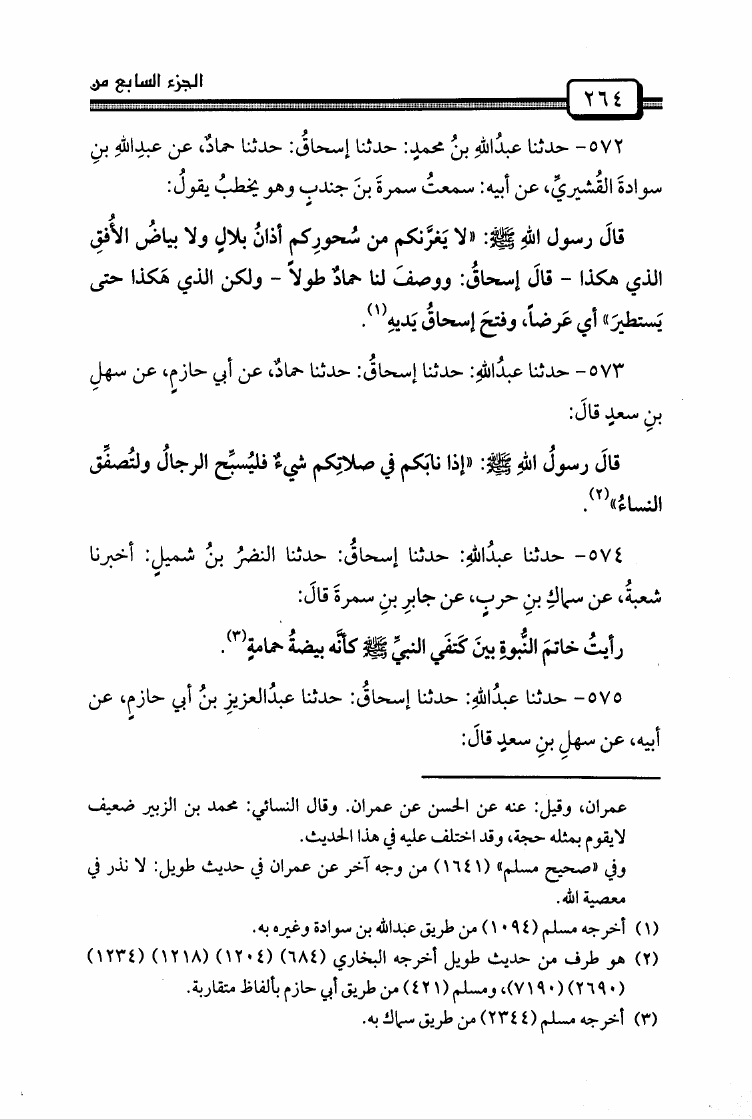 الجزء السابع من
٢٦٤
٥٧٢- حدثنا عبدُاللهِ بنُ محمدٍ: حدثنا إسحاقُ: حدثنا حمادٌ، عن عبدِاللهِ بنِ
سوادةَ القُشيريِّ، عن أبيه: سمعتُ سمرةَ بنَ جندبٍ وهو يخطبُ يقولُ:
قالَ رسول اللهِ ﷺ: «لا يَغرَّنكم من سُحورِكم أذانُ بلالٍ ولا بياضُ الأُفقِ
الذي هكذا - قالَ إسحاقُ: ووصفَ لنا حمادٌ طولاً - ولكن الذي هَكذا حتى
يَستطيرَ» أي عَرضاً، وفتحَ إسحاقُ يَديهِ(١).
٥٧٣- حدثنا عبدُاللهِ: حدثنا إسحاقُ: حدثنا حمادٌ، عن أبي حازمٍ، عن سهلِ
بنِ سعدٍ قالَ:
قالَ رسولُ اللهِ ﷺ: «إذا نابَكم في صلاتِكم شيءٌ فليُسبِّح الرجالُ ولتُصفِّق
النساءُ»(٢).
٥٧٤- حدثنا عبدُاللهِ: حدثنا إسحاقُ: حدثنا النضرُ بنُ شميلٍ: أخبرنا
شعبةُ، عن سماكِ بنِ حربٍ، عن جابرِ بنِ سمرةَ قالَ:
رأيتُ خاتمَ النُّبوةِ بينَ كَتفَي النبيِّ ﷺ كأنَّه بيضةُ حمامةٍ(٣).
٥٧٥- حدثنا عبدُاللهِ: حدثنا إسحاقُ: حدثنا عبدُالعزيزِ بنُ أبي حازمٍ، عن
أبيه، عن سهلِ بنِ سعدٍ قالَ:
عمران، وقيل: عنه عن الحسن عن عمران. وقال النسائي: محمد بن الزبير ضعيف
لا يقوم بمثله حجة، وقد اختلف عليه في هذا الحديث.
وفي «صحيح مسلم» (١٦٤١) من وجه آخر عن عمران في حديث طويل: لا نذر في
معصية الله.
(١) أخرجه مسلم (١٠٩٤) من طريق عبدالله بن سوادة وغيره به.
(٢) هو طرف من حديث طويل أخرجه البخاري (٦٨٤) (١٢٠٤) (١٢١٨) (١٢٣٤)
(٢٦٩٠) (٧١٩٠)، ومسلم (٤٢١) من طريق أبي حازم بألفاظ متقاربة.
(٣) أخرجه مسلم (٢٣٤٤) من طريق سماك به.